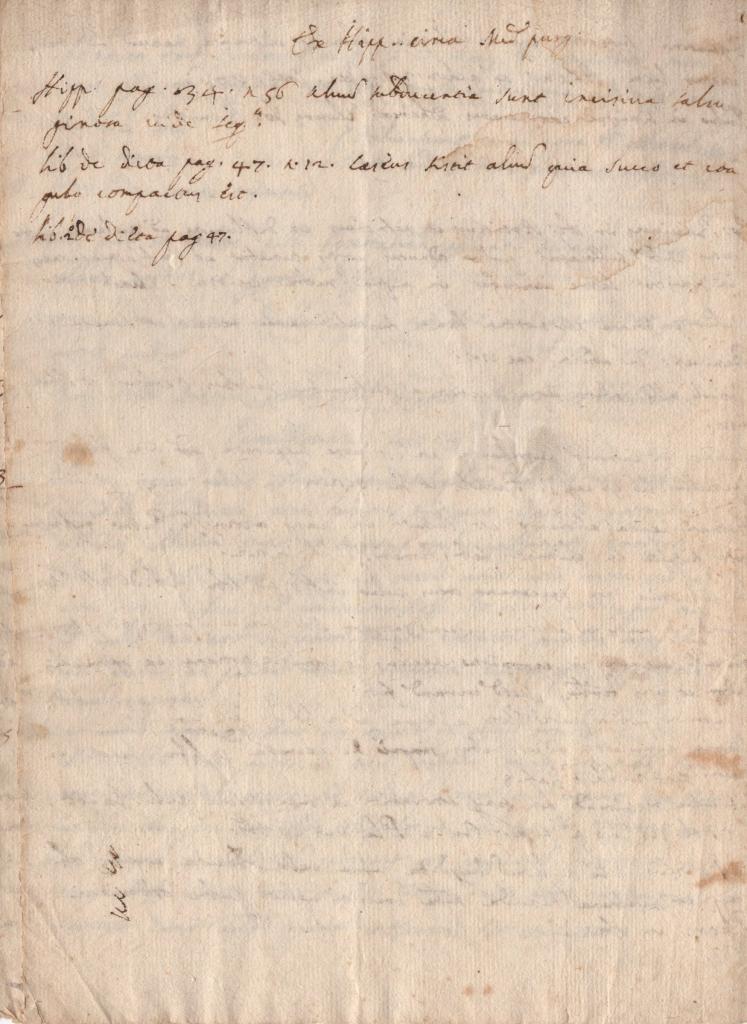 Ex Hipp. circa Med purg
Hipp. pag. 134. n 56 alvum subducentia sunt incisiva salsu
ginosa
lib de dieta pag. 47. n. 12. caseus sistit alvum quia succo et coa
gulo compactus est.
lib 2 de dieta pag 47.